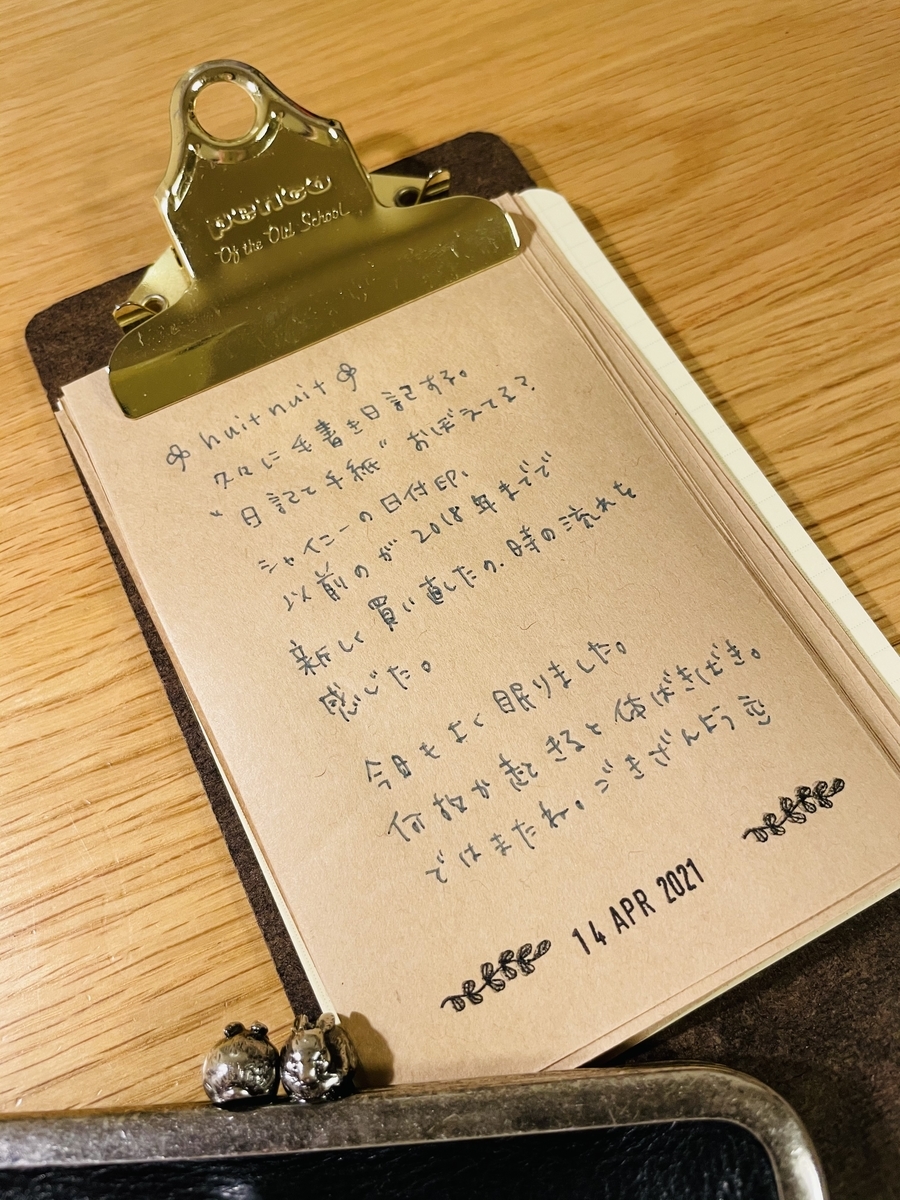 penco
Of the Old School
huit nuit
久々に手書き日記する。
"日記と手紙" おぼえてる?
シャイニーの日付印、
以前のが2018年までで
新しく買い直したの、時の流れを
感じた。
今日もよく眠りました。
何故か起きると体ばきばき。
ではまたね。ごきげんよう
14 APR 2021